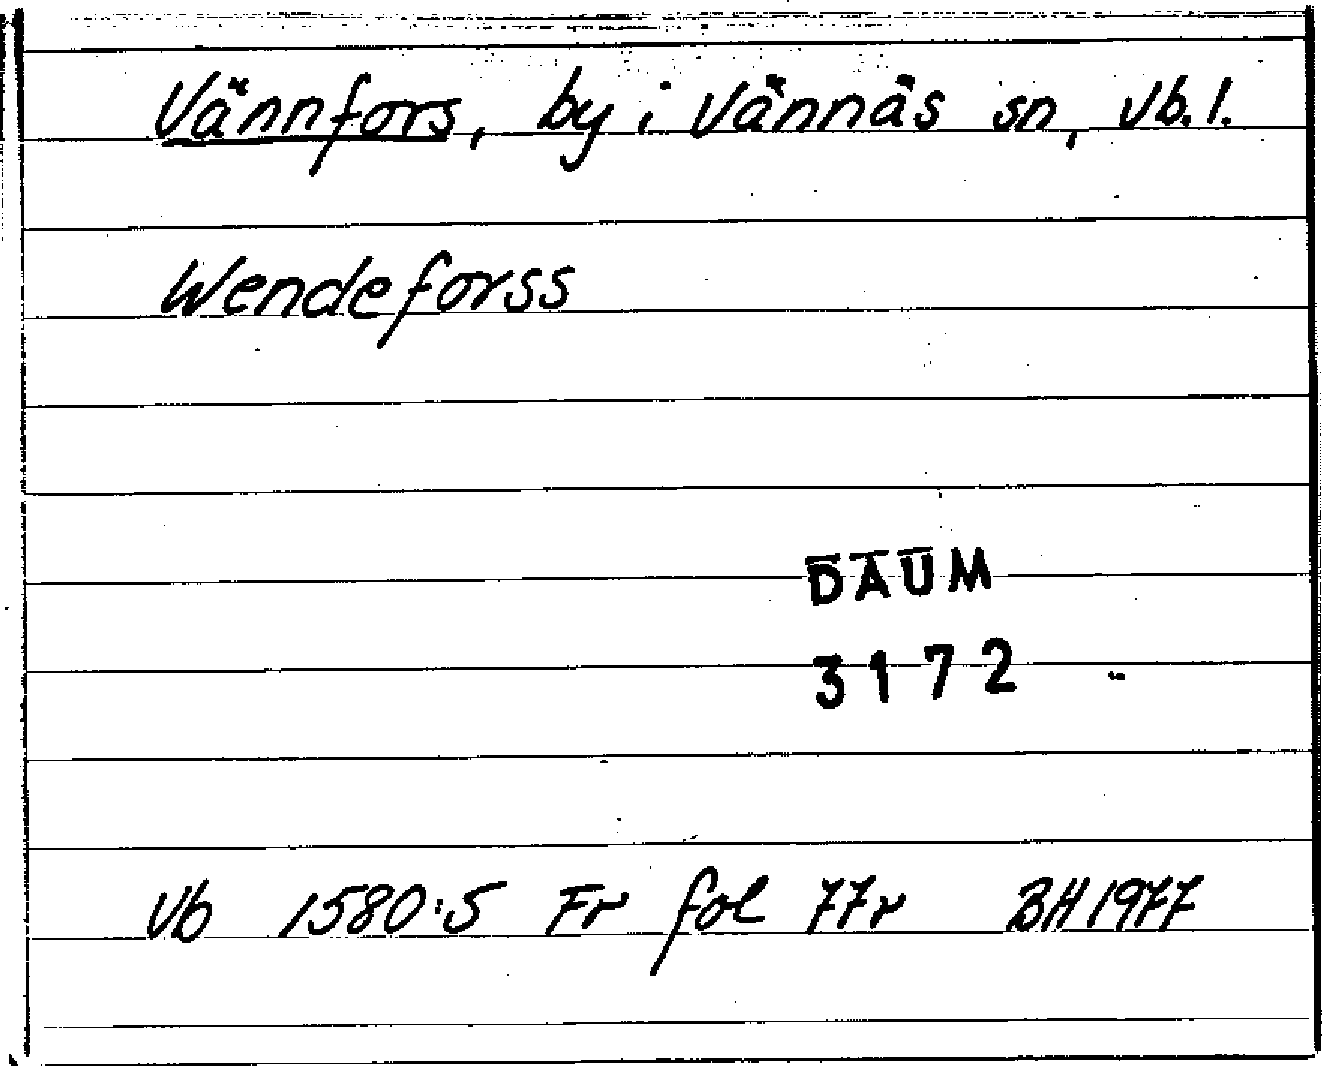 Vännfors, by i Vännäs sn, Vb.l.
Wendeforss
DAUM
3172
Vb 1580:5 Fr fol 77r BH 1977